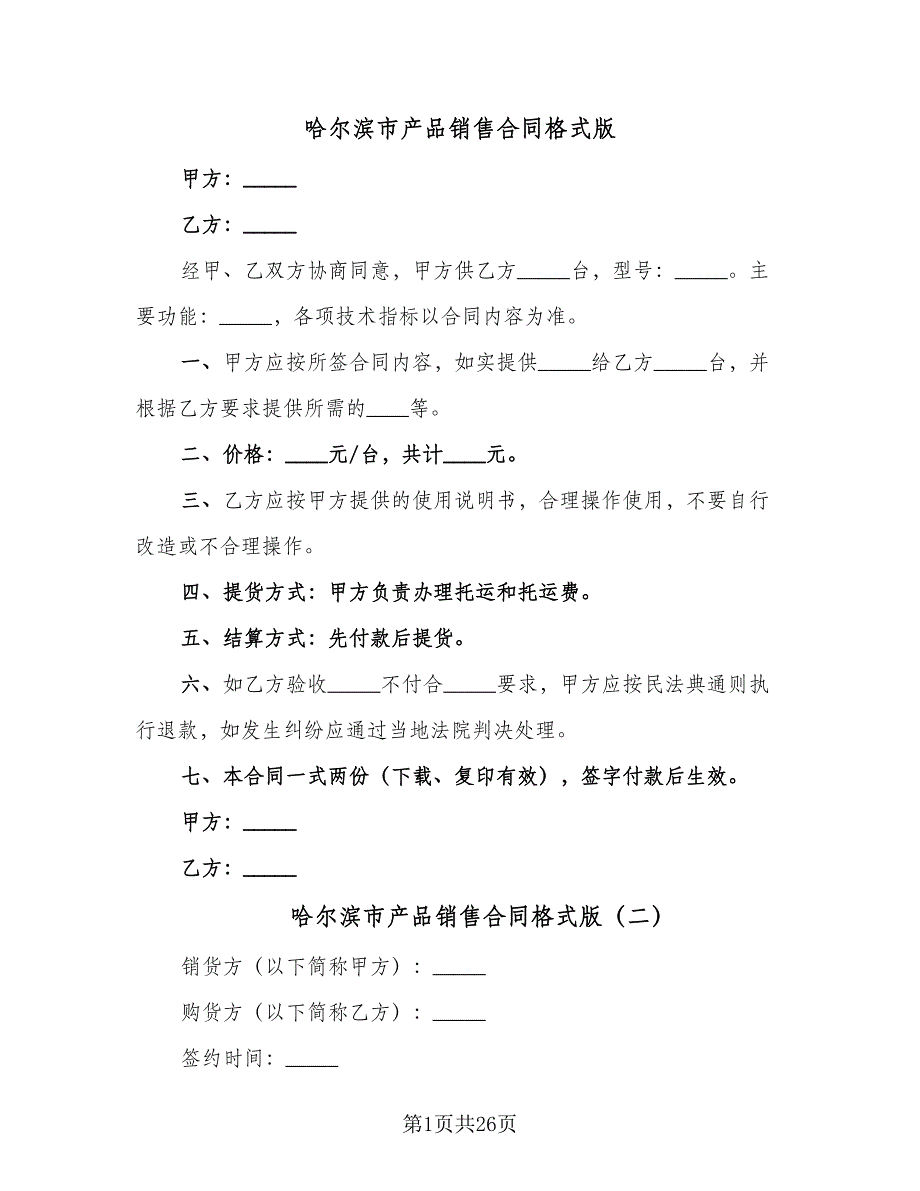 哈尔滨市产品销售合同格式版
甲方：_____
乙方：_____
经甲、乙双方协商同意，甲方供乙方_____台，型号：_____。主
要功能：_____，各项技术指标以合同内容为准。
一、甲方应按所签合同内容，如实提供_____给乙方_____台，并
根据乙方要求提供所需的____等。
二、价格：____元/台，共计____元。
三、乙方应按甲方提供的使用说明书，合理操作使用，不要自行
改造或不合理操作。
四、提货方式：甲方负责办理托运和托运费。
五、结算方式：先付款后提货。
六、如乙方验收_____不付合_____要求，甲方应按民法典通则执
行退款，如发生纠纷应通过当地法院判决处理。
七、本合同一式两份（下载、复印有效），签字付款后生效。
甲方：_____
乙方：_____
哈尔滨市产品销售合同格式版（二）
销货方（以下简称甲方）：_____
购货方（以下简称乙方）：_____
签约时间：_____
第1页共26页